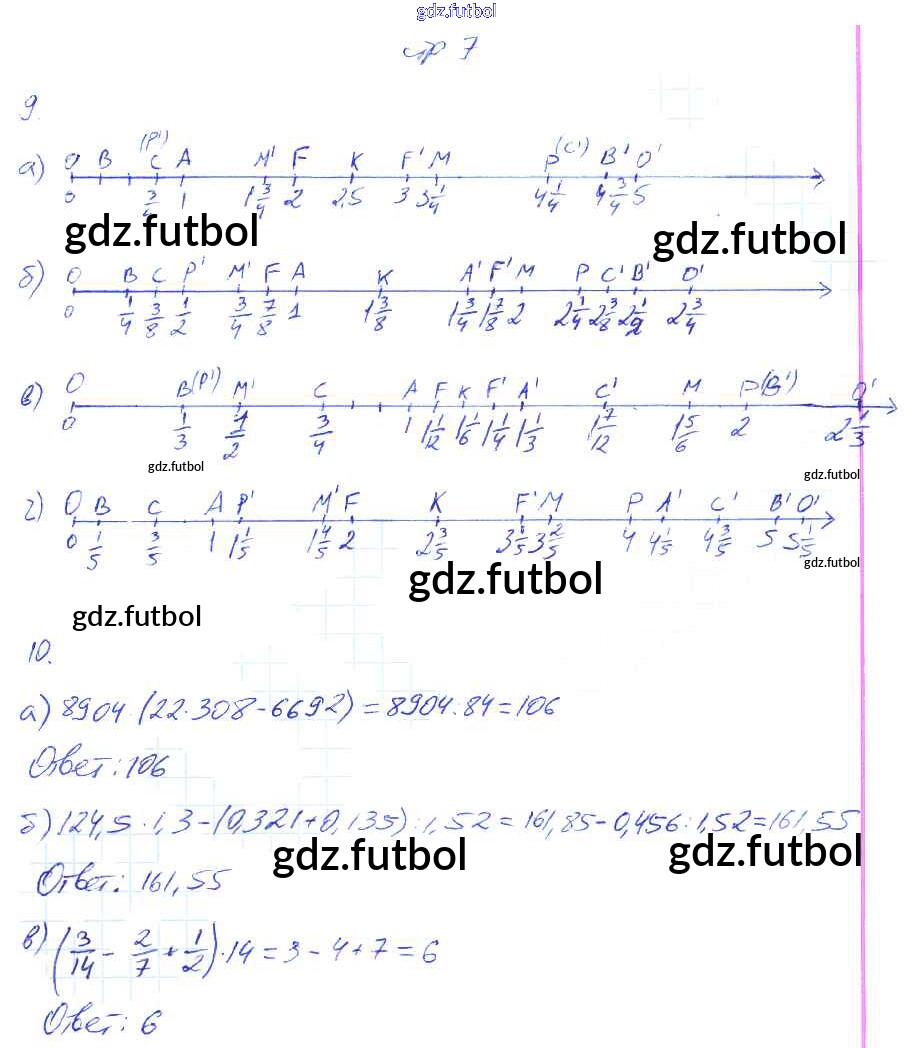 gdz.futbol
стр 7
9.
а) O B (P') C A M' F K F' M P (C') B' O'
0 3/4 1 1 3/4 2 2,5 3 3 1/4 4 1/4 4 3/4 5
gdz.futbol gdz.futbol
б) O B C P' M' F A K A' F' M P C' B' O'
0 1/4 3/8 1/2 3/4 7/8 1 1 3/8 1 3/4 1 7/8 2 2 1/4 2 3/8 2 1/2 2 3/4
в) O B(P') M' C A F K F' A' C' M P(B') O'
0 1/3 1/2 3/4 1 1 1/12 1 1/6 1 1/4 1 1/3 1 7/12 1 5/6 2 2 1/3
gdz.futbol gdz.futbol
г) O B C A P' M' F K F' M P A' C' B' O'
0 1/5 3/5 1 1 1/5 1 4/5 2 2 3/5 3 1/5 3 2/5 4 4 1/5 4 3/5 5 5 1/5
gdz.futbol gdz.futbol
gdz.futbol
10.
а) 8904:(22·308-6692)=8904:84=106
Ответ: 106
б) 124,5·1,3-(0,321+0,135):1,52=161,85-0,456:1,52=161,55
gdz.futbol gdz.futbol
Ответ: 161,55
в) (3/14 - 2/7 + 1/2)·14=3-4+7=6
Ответ: 6